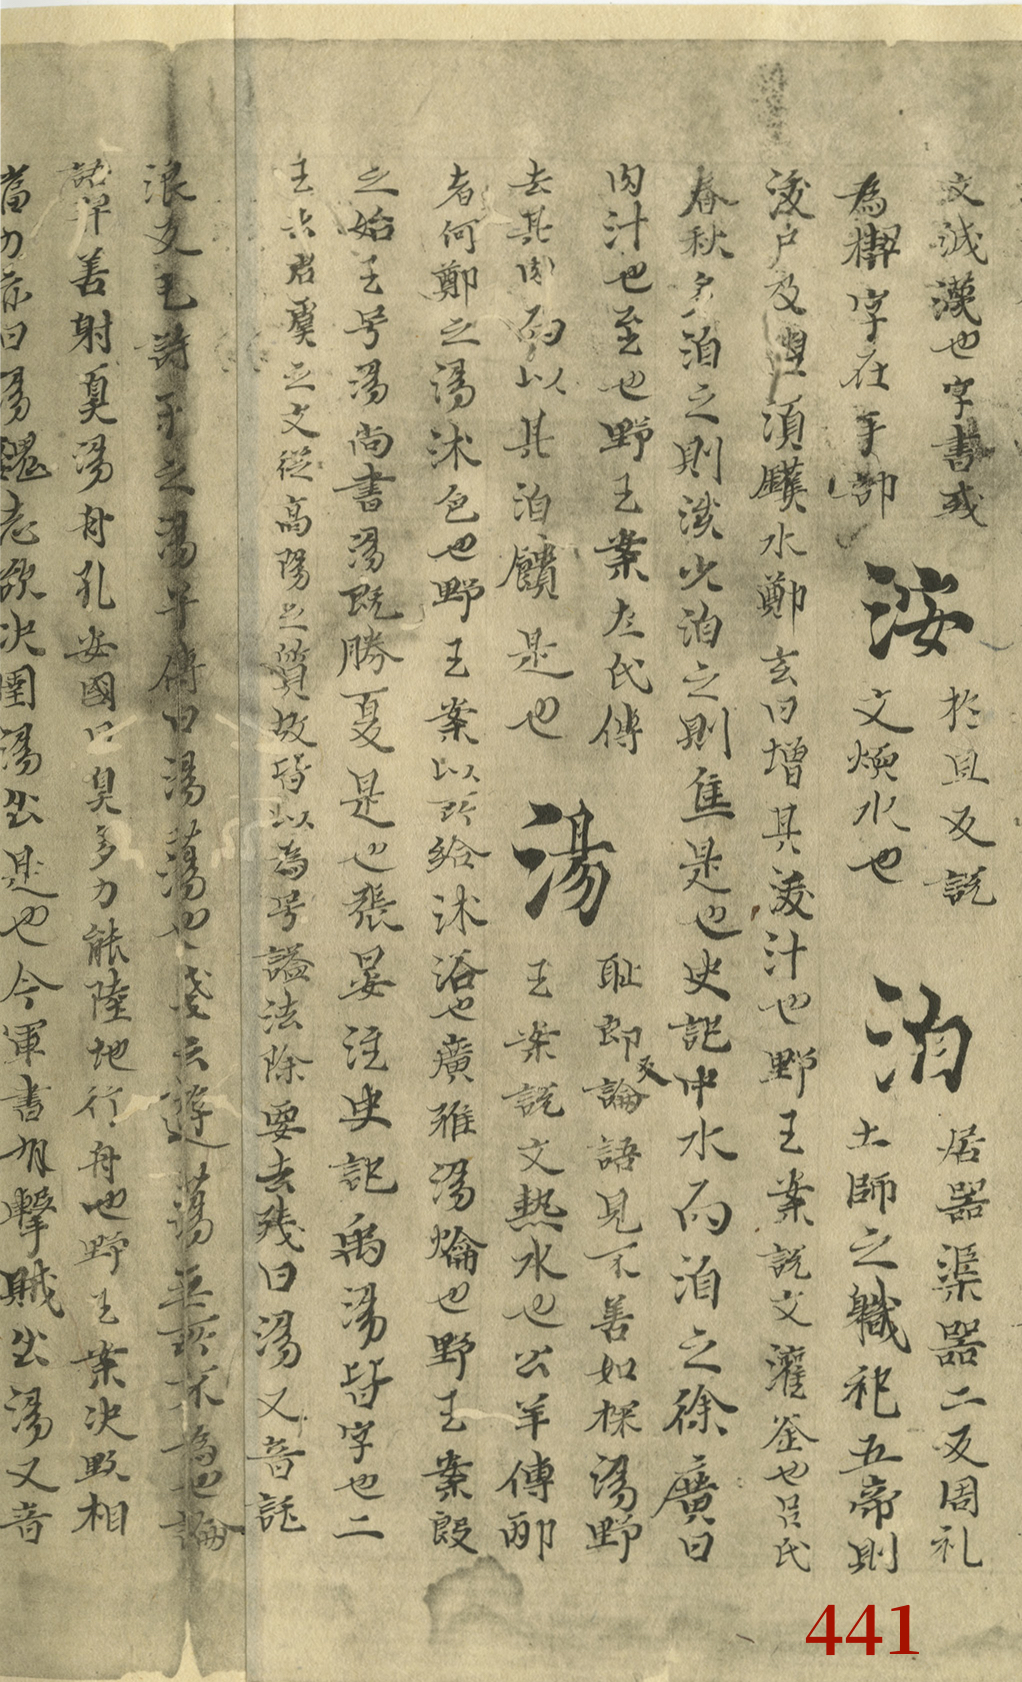 文淢漢也字書或
為㮮字在手部 洝 於旦反說
文㬉水也 洎 居器渠器二反周礼
土師之軄祀五帝則
洎户及曽湏鑊水鄭玄曰增其洎汁也野王案說文灌釜也吕氏
春秋多洎之則淡少洎之則焦是也史記中水而洎之徐廣曰
肉汁也至也野王案左氏傳
去其肉而以其洎饋是也 湯 耻郎反論語見不善如探湯野
王案說文熱水也公羊傳邴
者何鄭之湯沐邑也野王案以所給沐浴也廣雅湯爚也野王案殷
之始王号湯尚書湯旣勝夏是也張晏注史記禹湯皆字也二
王去唐虞之文從高陽之質故皆以為号謚法除要去殘曰湯又音託
浪反毛詩子之湯兮傳曰湯蕩也戔云遊蕩無所不為也論
語羿善射奡湯舟孔安國曰奡多力能陸地行舟也野王案決盪相
當力亦曰湯魏志欲决圍湯出是也今軍書有擊賊出湯又音
441